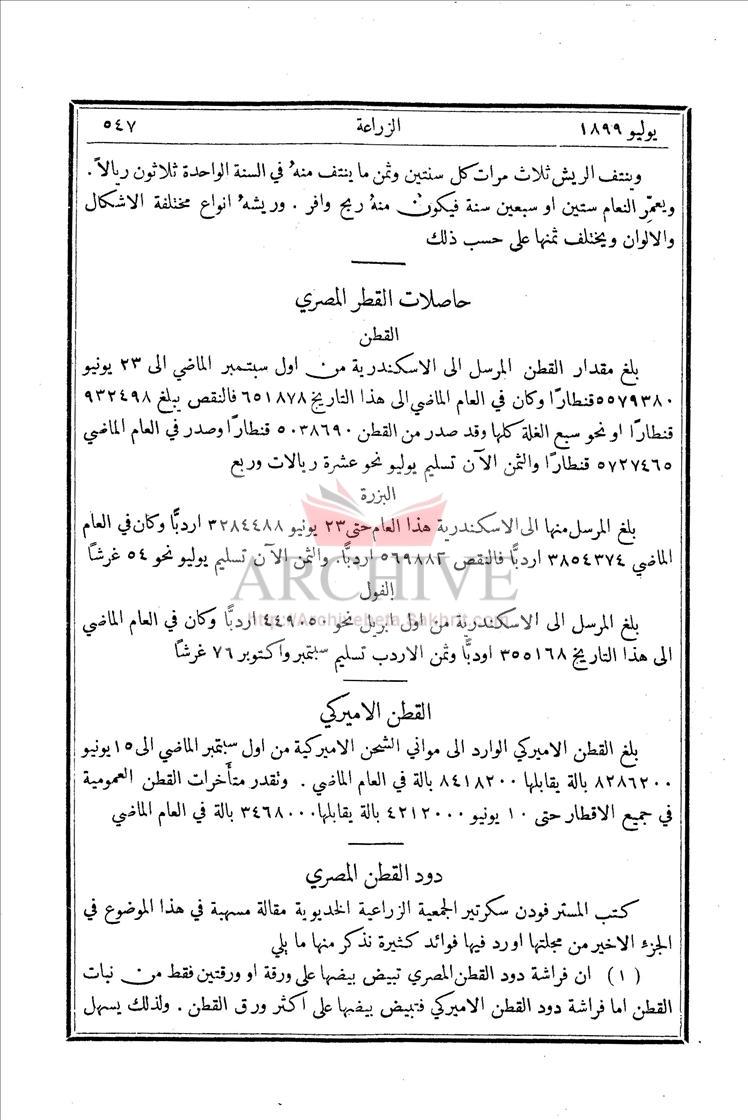 يوليو ١٨٩٩ الزراعة ٥٤٧
وينتف الريش ثلاث مرات كل سنتين وثمن ما ينتف منهُ في السنة الواحدة ثلاثون ريالاً.
ويعمّر النعام ستين او سبعين سنة فيكون منهُ ربح وافر. وريشهُ انواع مختلفة الاشكال
والالوان ويختلف ثمنها على حسب ذلك
حاصلات القطر المصري
القطن
بلغ مقدار القطن المرسل الى الاسكندرية من اول سبتمبر الماضي الى ٢٣ يونيو
٥٥٧٩٣٨٠ قنطارًا وكان في العام الماضي الى هذا التاريخ ٦٥١٨٧٨ فالنقص يبلغ ٩٣٢٤٩٨
قنطارًا او نحو سبع الغلة كلها وقد صدر من القطن ٥٠٣٨٦٩٠ قنطارًا وصدر في العام الماضي
٥٧٢٧٤٦٥ قنطارًا والثمن الآن تسليم يوليو نحو عشرة ريالات وربع
البزرة
بلغ المرسل منها الى الاسكندرية هذا العام حتى ٢٣ يونيو ٣٢٨٤٤٨٨ اردبًّا وكان في العام
الماضي ٣٨٥٤٣٧٤ اردبًّا فالنقص ٥٦٩٨٨٢ اردبًّا. والثمن الآن تسليم يوليو نحو ٥٤ غرشًا
ARCHIVE
الفول
http://Archivebeta.Sakhrit.com
بلغ المرسل الى الاسكندرية من اول ابريل نحو ٤٤٩٠٥٠ اردبًّا وكان في العام الماضي
الى هذا التاريخ ٣٥٥١٦٨ اودبًّا وثمن الاردب تسليم سبتمبر واكتوبر ٧٦ غرشًا
القطن الاميركي
بلغ القطن الاميركي الوارد الى مواني الشحن الاميركية من اول سبتمبر الماضي الى ١٥ يونيو
٨٢٨٦٢٠٠ بالة يقابلها ٨٤١٨٢٠٠ بالة في العام الماضي. وتقدر متأخرات القطن العمومية
في جميع الاقطار حتى ١٠ يونيو ٤٢١٢٠٠٠ بالة يقابلها ٣٤٦٨٠٠٠ بالة في العام الماضي
دود القطن المصري
كتب المستر فودن سكرتير الجمعية الزراعية الخديوية مقالة مسهبة في هذا الموضوع في
الجزء الاخير من مجلتها اورد فيها فوائد كثيرة نذكر منها ما يلي
(١) ان فراشة دود القطن المصري تبيض بيضها على ورقة او ورقتين فقط من نبات
القطن اما فراشة دود القطن الاميركي فتبيض بيضها على اكثر ورق القطن. ولذلك يسهل